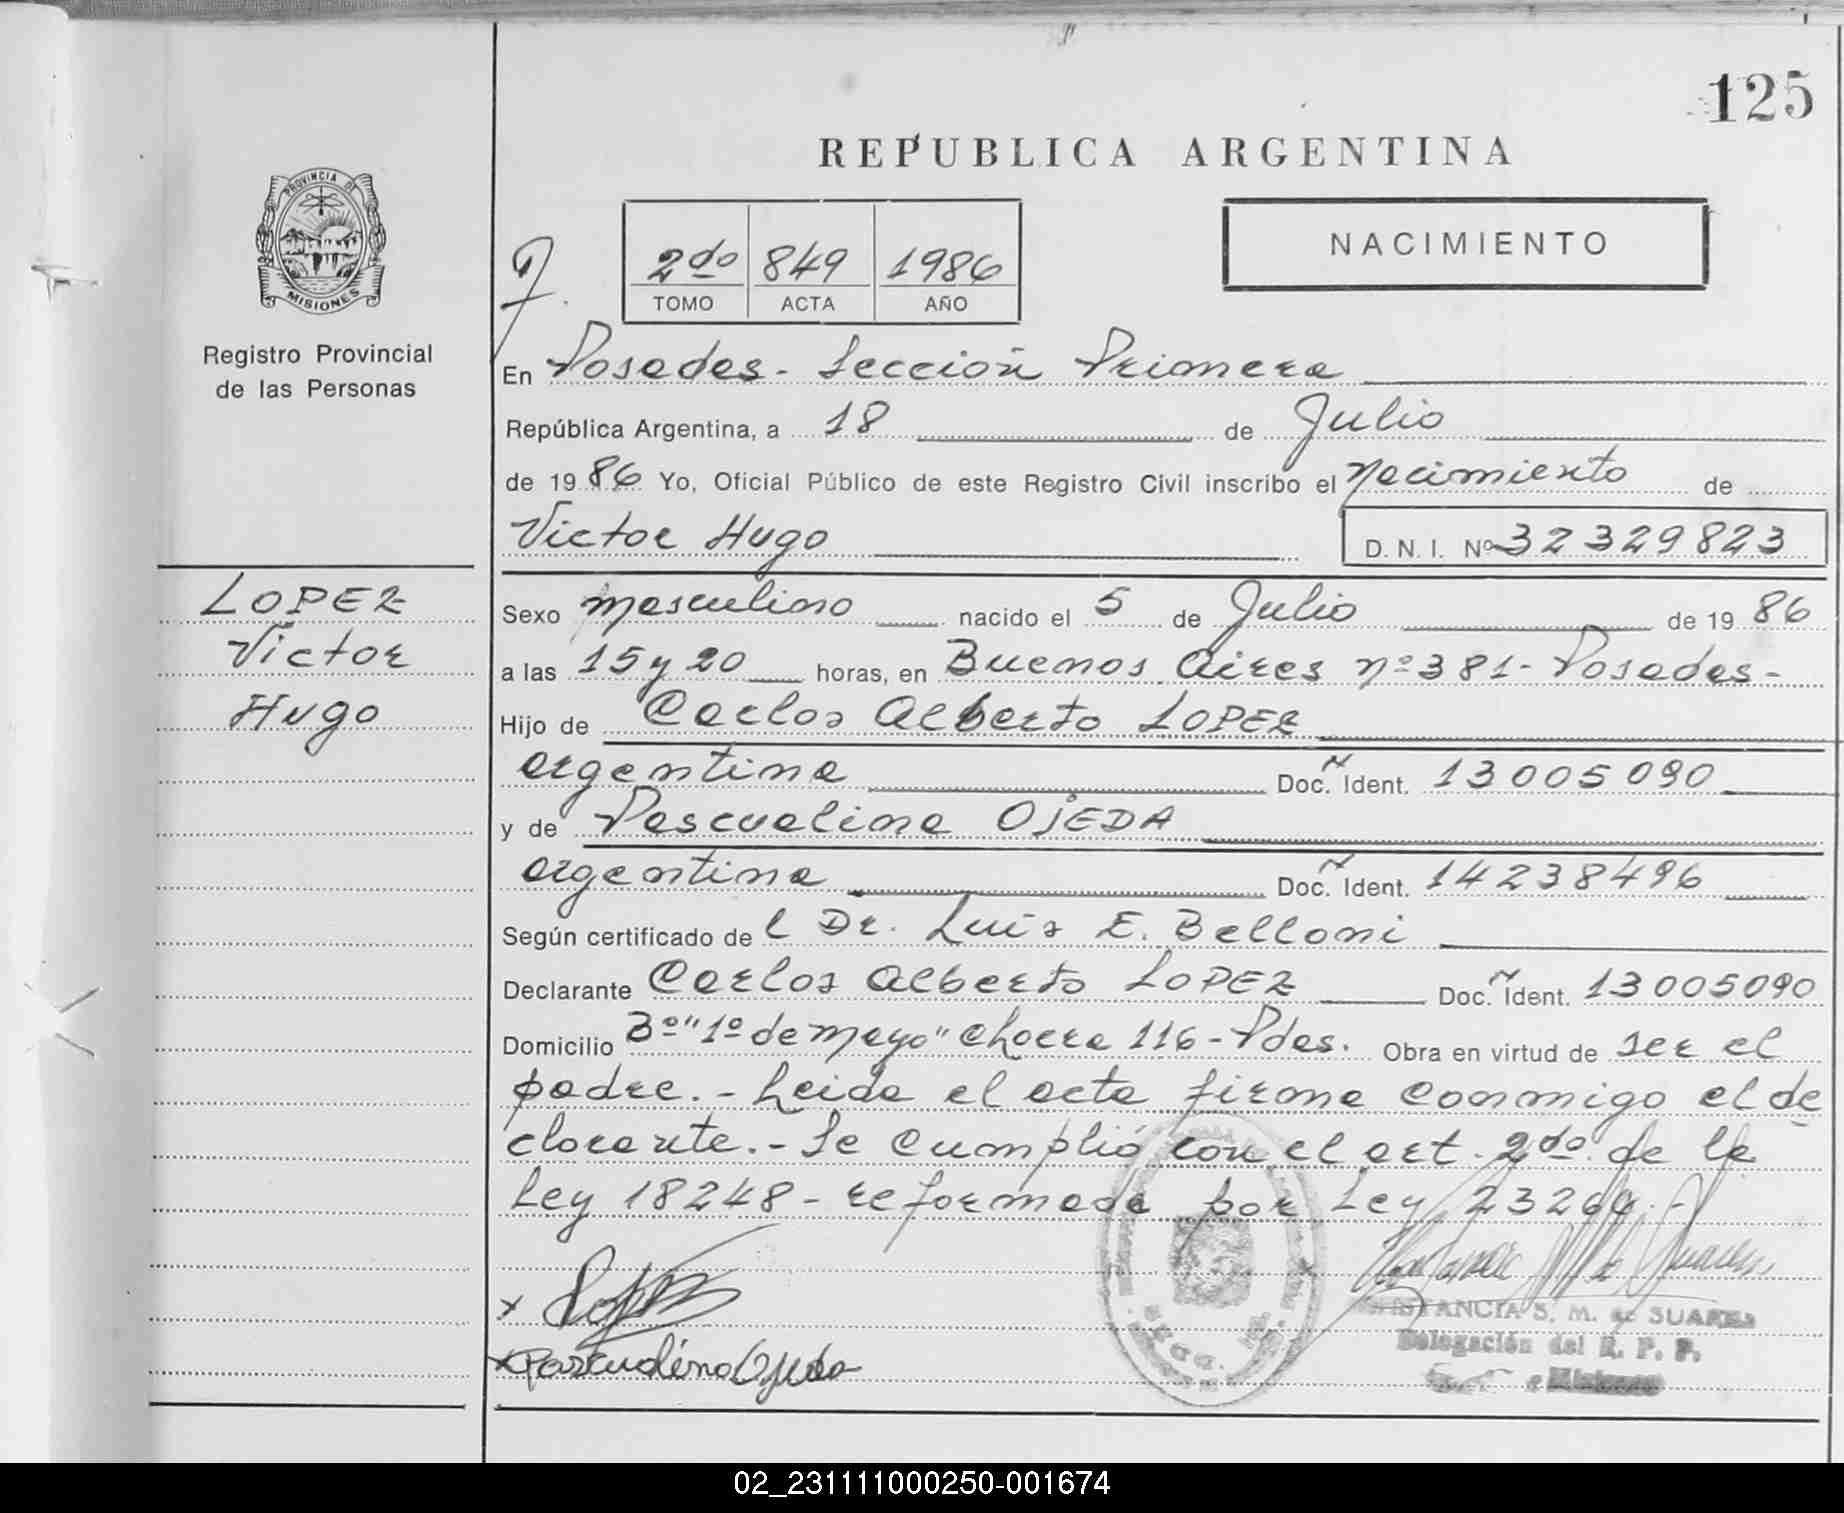 125
REPUBLICA ARGENTINA
PROVINCIA DE
MISIONES
Registro Provincial
de las Personas
NACIMIENTO
2do 849 1986
TOMO ACTA AÑO
LOPEZ
Victor
Hugo
En Posadas - Sección Primera
República Argentina, a 18 de Julio
de 1986 Yo, Oficial Público de este Registro Civil inscribo el Nacimiento de
Victor Hugo D.N.I. Nº 32329823
Sexo masculino nacido el 5 de Julio de 1986
a las 15 y 20 horas, en Buenos Aires nº 381 - Posadas -
Hijo de Carlos Alberto LOPEZ
argentina Doc. Ident. 13005090
y de Pascualina OJEDA
argentina Doc. Ident. 14238496
Según certificado del Dr. Luis E. Belloni
Declarante Carlos Alberto LOPEZ Doc. Ident. 13005090
Domicilio Bº "1º de mayo" Chacra 116 - Pdas. Obra en virtud de ser el
padre. - Leida el acta firma conmigo el de
clarante. - Se cumplió con el art. 2do. de la
Ley 18248 - reformada por Ley 23264 -
x Lopez
x Pascualina Ojeda
S. M. de SUAREZ
Delegación del R. P. P.
Misiones
02_231111000250-001674